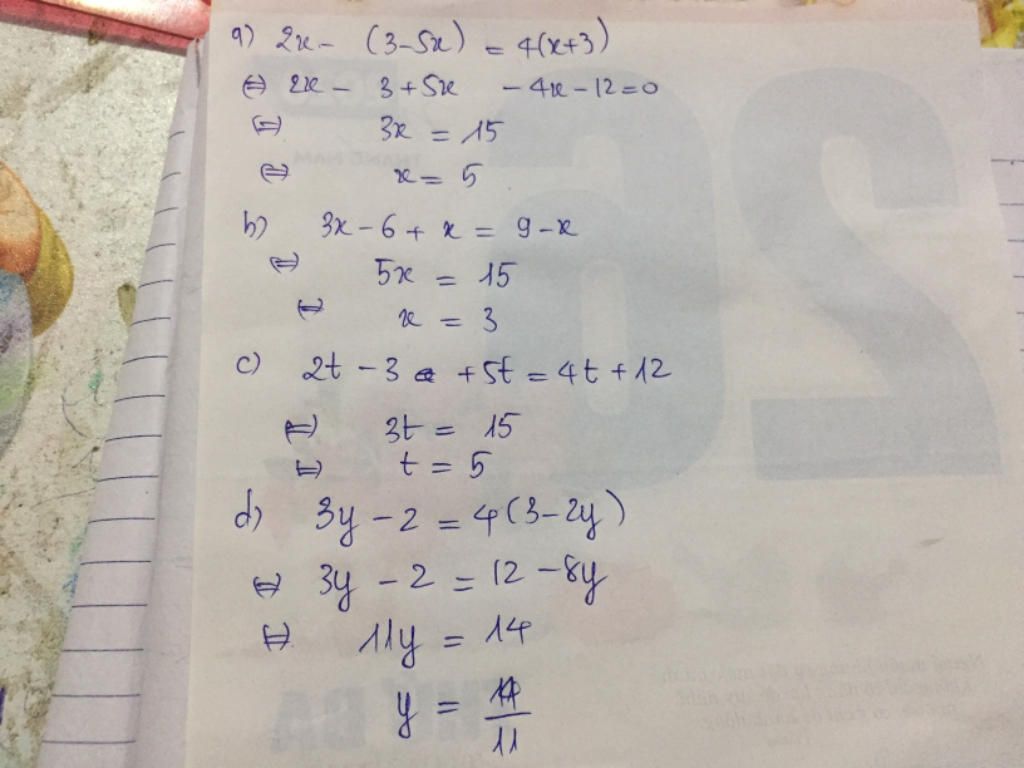 a) 2x - (3-5x) = 4(x+3)
⇔ 2x - 3 + 5x - 4x - 12 = 0
⇔ 3x = 15
⇔ x = 5
b) 3x - 6 + x = 9 - x
⇔ 5x = 15
⇔ x = 3
c) 2t - 3 + 5t = 4t + 12
⇔ 3t = 15
⇔ t = 5
d) 3y - 2 = 4(3-2y)
⇔ 3y - 2 = 12 - 8y
⇔ 11y = 14
y = 14/11